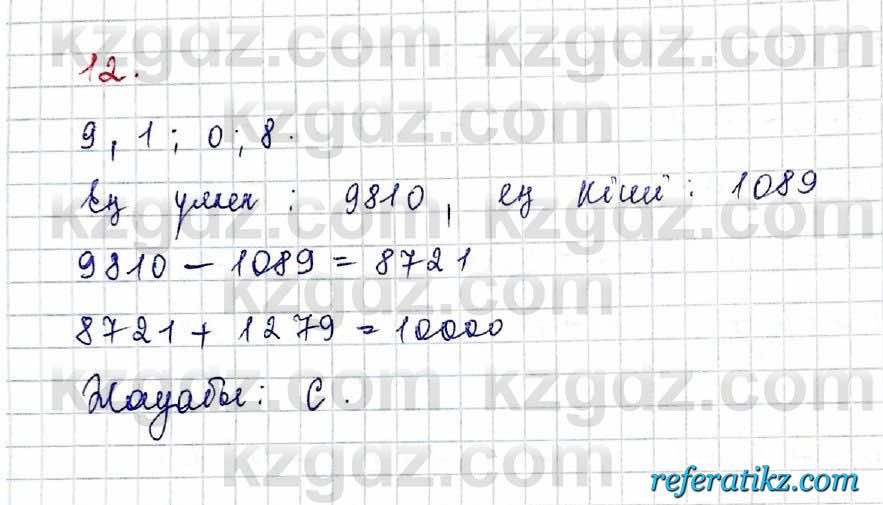 kzgdz.com
12.
9, 1; 0; 8.
Ең үлкен: 9810, ең кіші: 1089
9810 - 1089 = 8721
8721 + 1279 = 10000
Жауабы: С.
referatikz.com